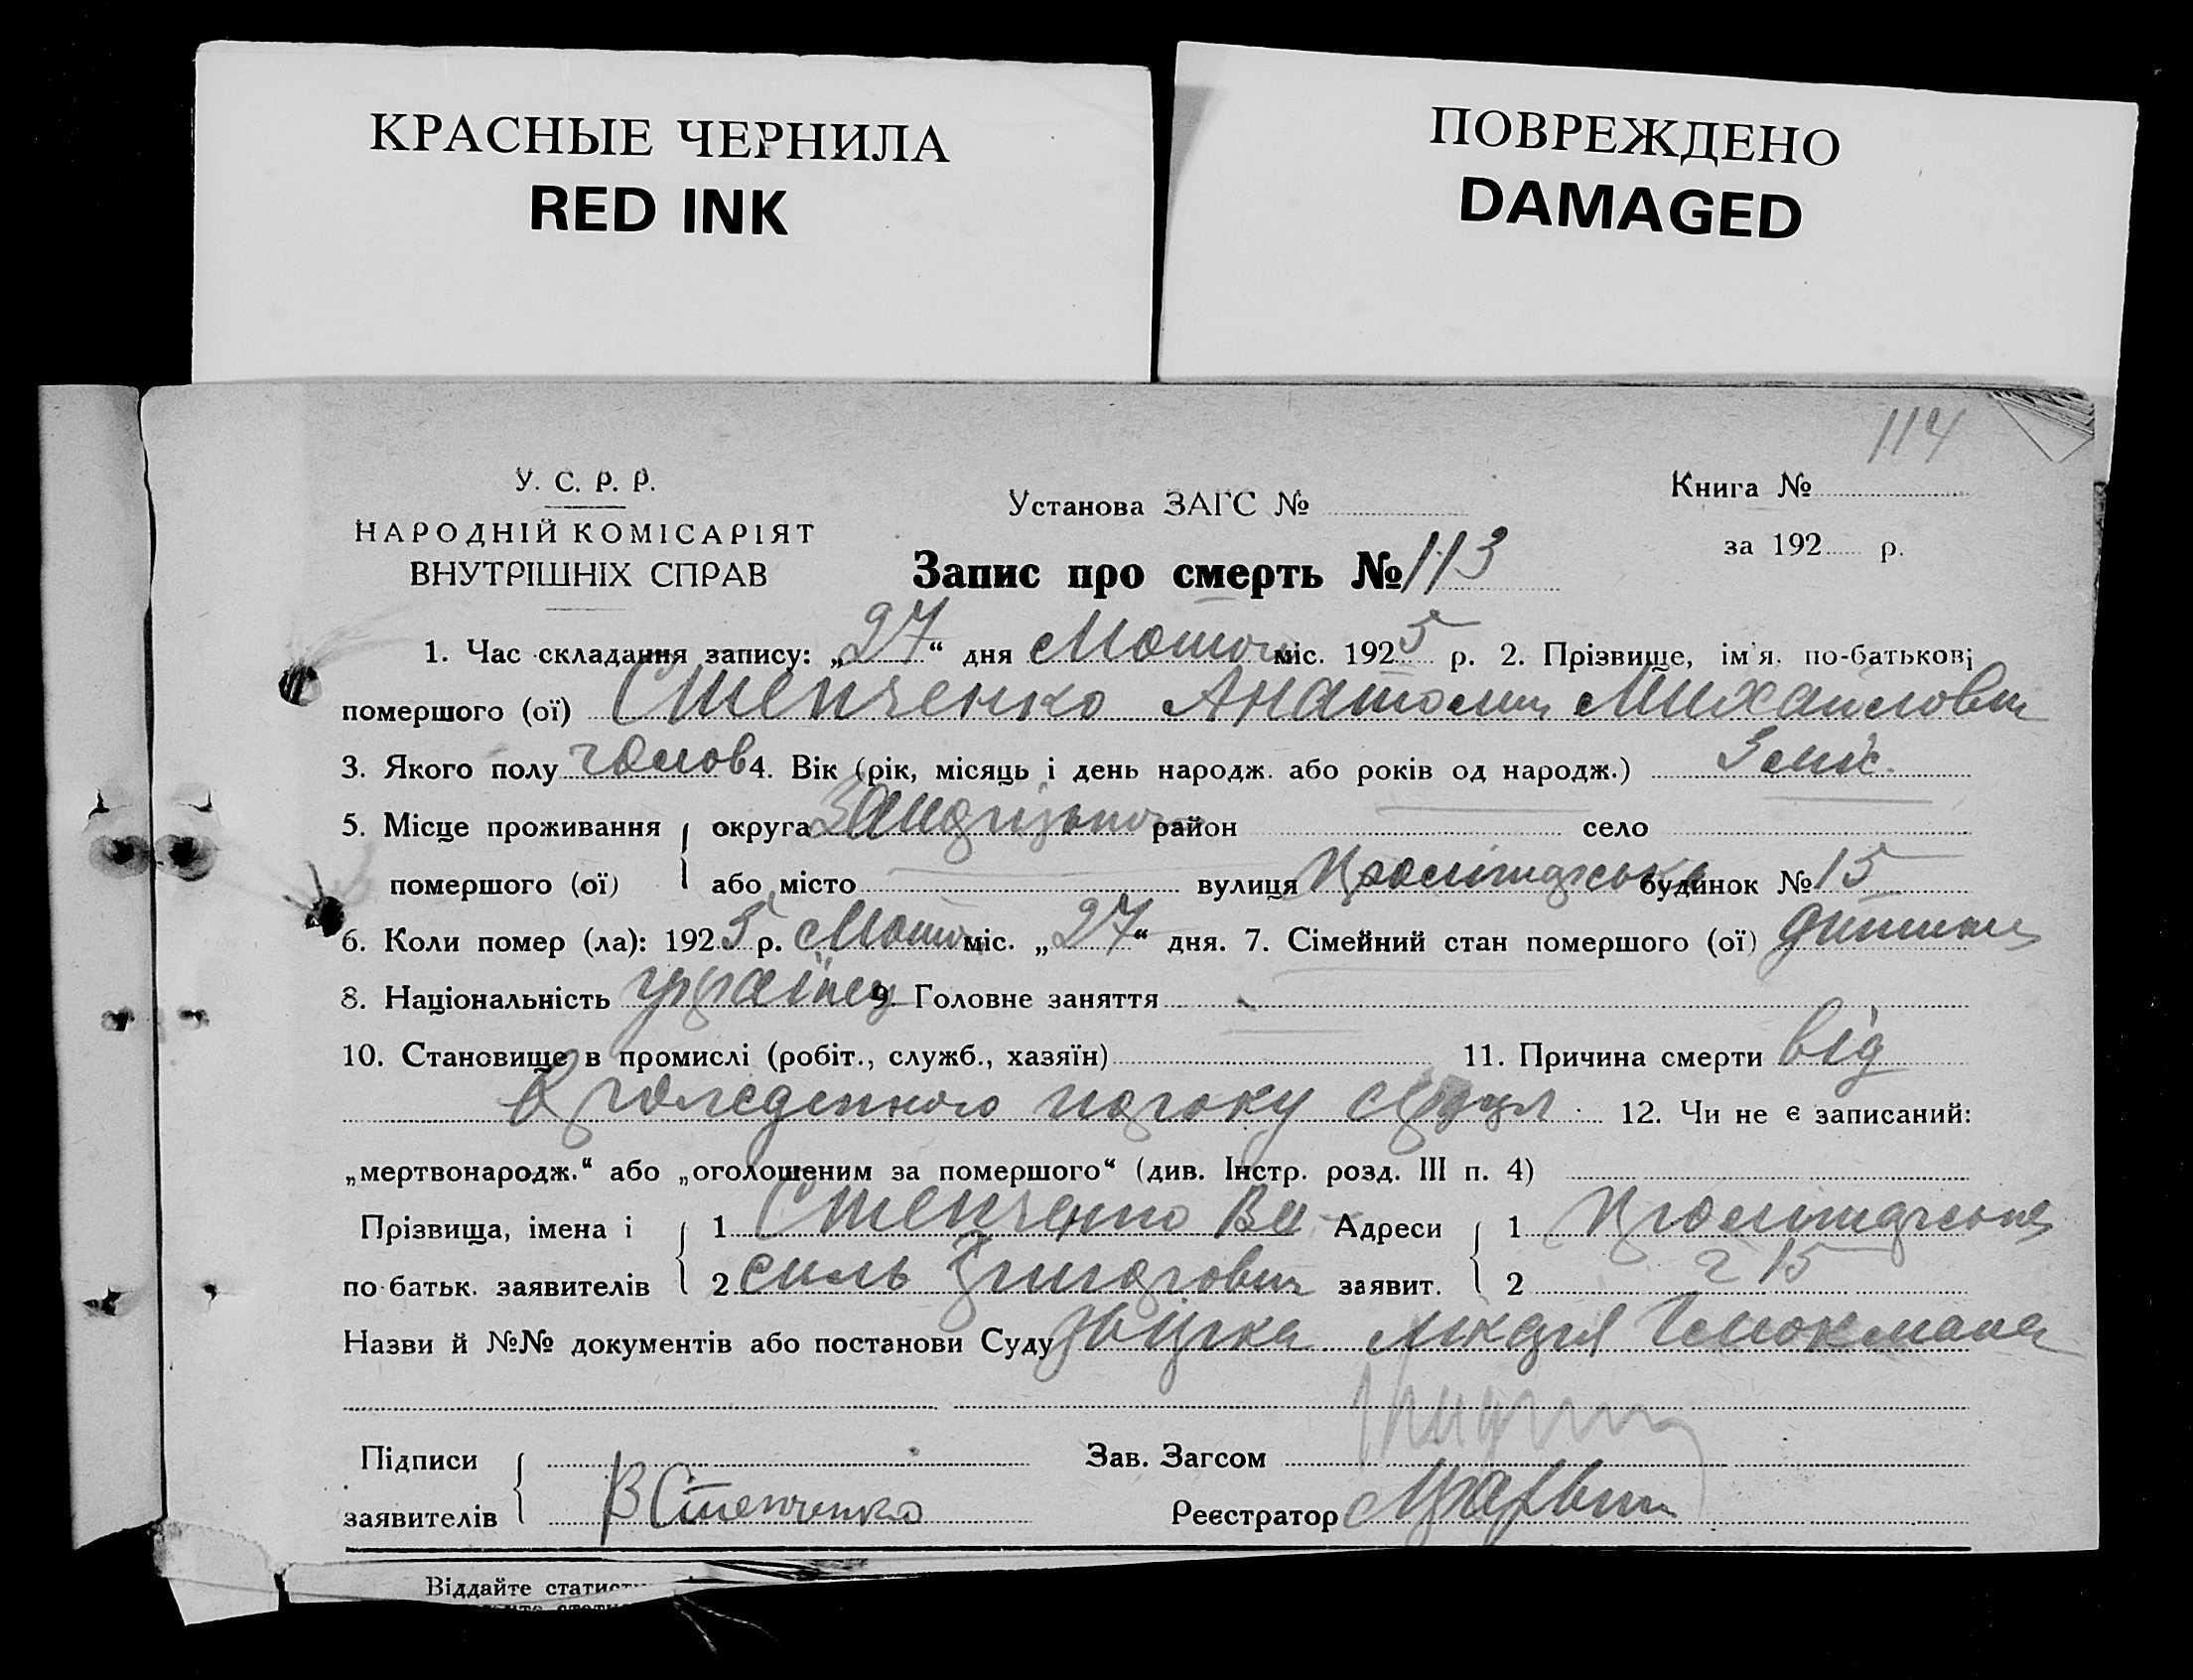 КРАСНЫЕ ЧЕРНИЛА
RED INK
ПОВРЕЖДЕНО
DAMAGED
114
У. С. Р. Р.
НАРОДНІЙ КОМІСАРІЯТ
ВНУТРІШНІХ СПРАВ
Установа ЗАГС №
Книга №
за 192 р.
Запис про смерть № 113
1. Час складання запису: „27“ дня міс. 1925 р. 2. Прізвище, ім'я, по-батькові
помершого (ої) Степченко Анатолий Михайлович
3. Якого полу чолов 4. Вік (рік, місяць і день народж. або років од народж.) 3
5. Місце проживання округа район село
помершого (ої) або місто вулиця Пролітарська будинок № 15
6. Коли помер (ла): 1925 р. міс. „27“ дня. 7. Сімейний стан помершого (ої) дитина
8. Національність українец 9. Головне заняття
10. Становище в промислі (робіт., служб., хазяїн) 11. Причина смерти від
пороку 12. Чи не є записаний:
„мертвонародж.“ або „оголошеним за помершого“ (див. Інстр. розд. III п. 4)
Прізвища, імена і 1 Степченко Ва Адреси 1 Пролітарська
по-батьк. заявителів 2 силь Григорович заявит. 2 15
Назви й №№ документів або постанови Суду
Підписи Зав. Загсом
заявителів ВСтепченко Реєстратор
Віддайте статист